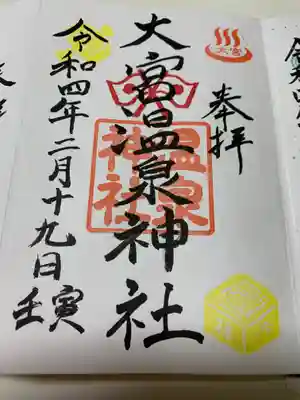 大宮
奉拝
大宮温泉神社
温泉
神社
令和四年二月十九日
壬寅